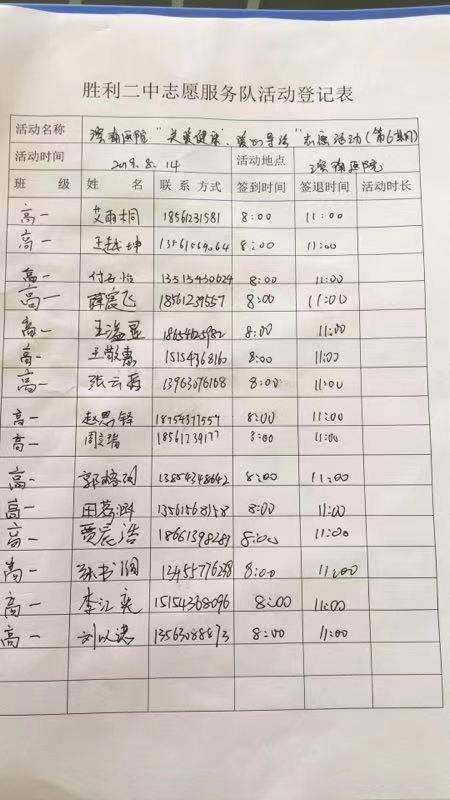 胜利二中志愿服务队活动登记表
活动名称 滨南医院“关爱健康、爱心导诊”志愿活动(第6期)
活动时间 2019.8.14 活动地点 滨南医院
班 级 姓 名 联系方式 签到时间 签退时间 活动时长
高一 艾雨桐 18561231581 8:00 11:00
高一 王越坤 13561569064 8:00 11:00
高一 付子怡 13515430624 8:00 11:00
高一 薛震飞 18561239557 8:00 11:00
高一 王溢显 8:00 11:00
高一 王敬惠 15154368160 8:00 11:00
高一 张云 13963076168 8:00 11:00
高一 赵思铎 18754377557 8:00 11:00
高一 周 18561239177 8:00 11:00
高一 郭 13854348642 8:00 11:00
高一 田 8:00 11:00
高一 贾宸浩 18661398289 8:00 11:00
高一 张书润 8:00 11:00
高一 李江奕 15154368096 8:00 11:00
高一 刘以诺 8:00 11:00